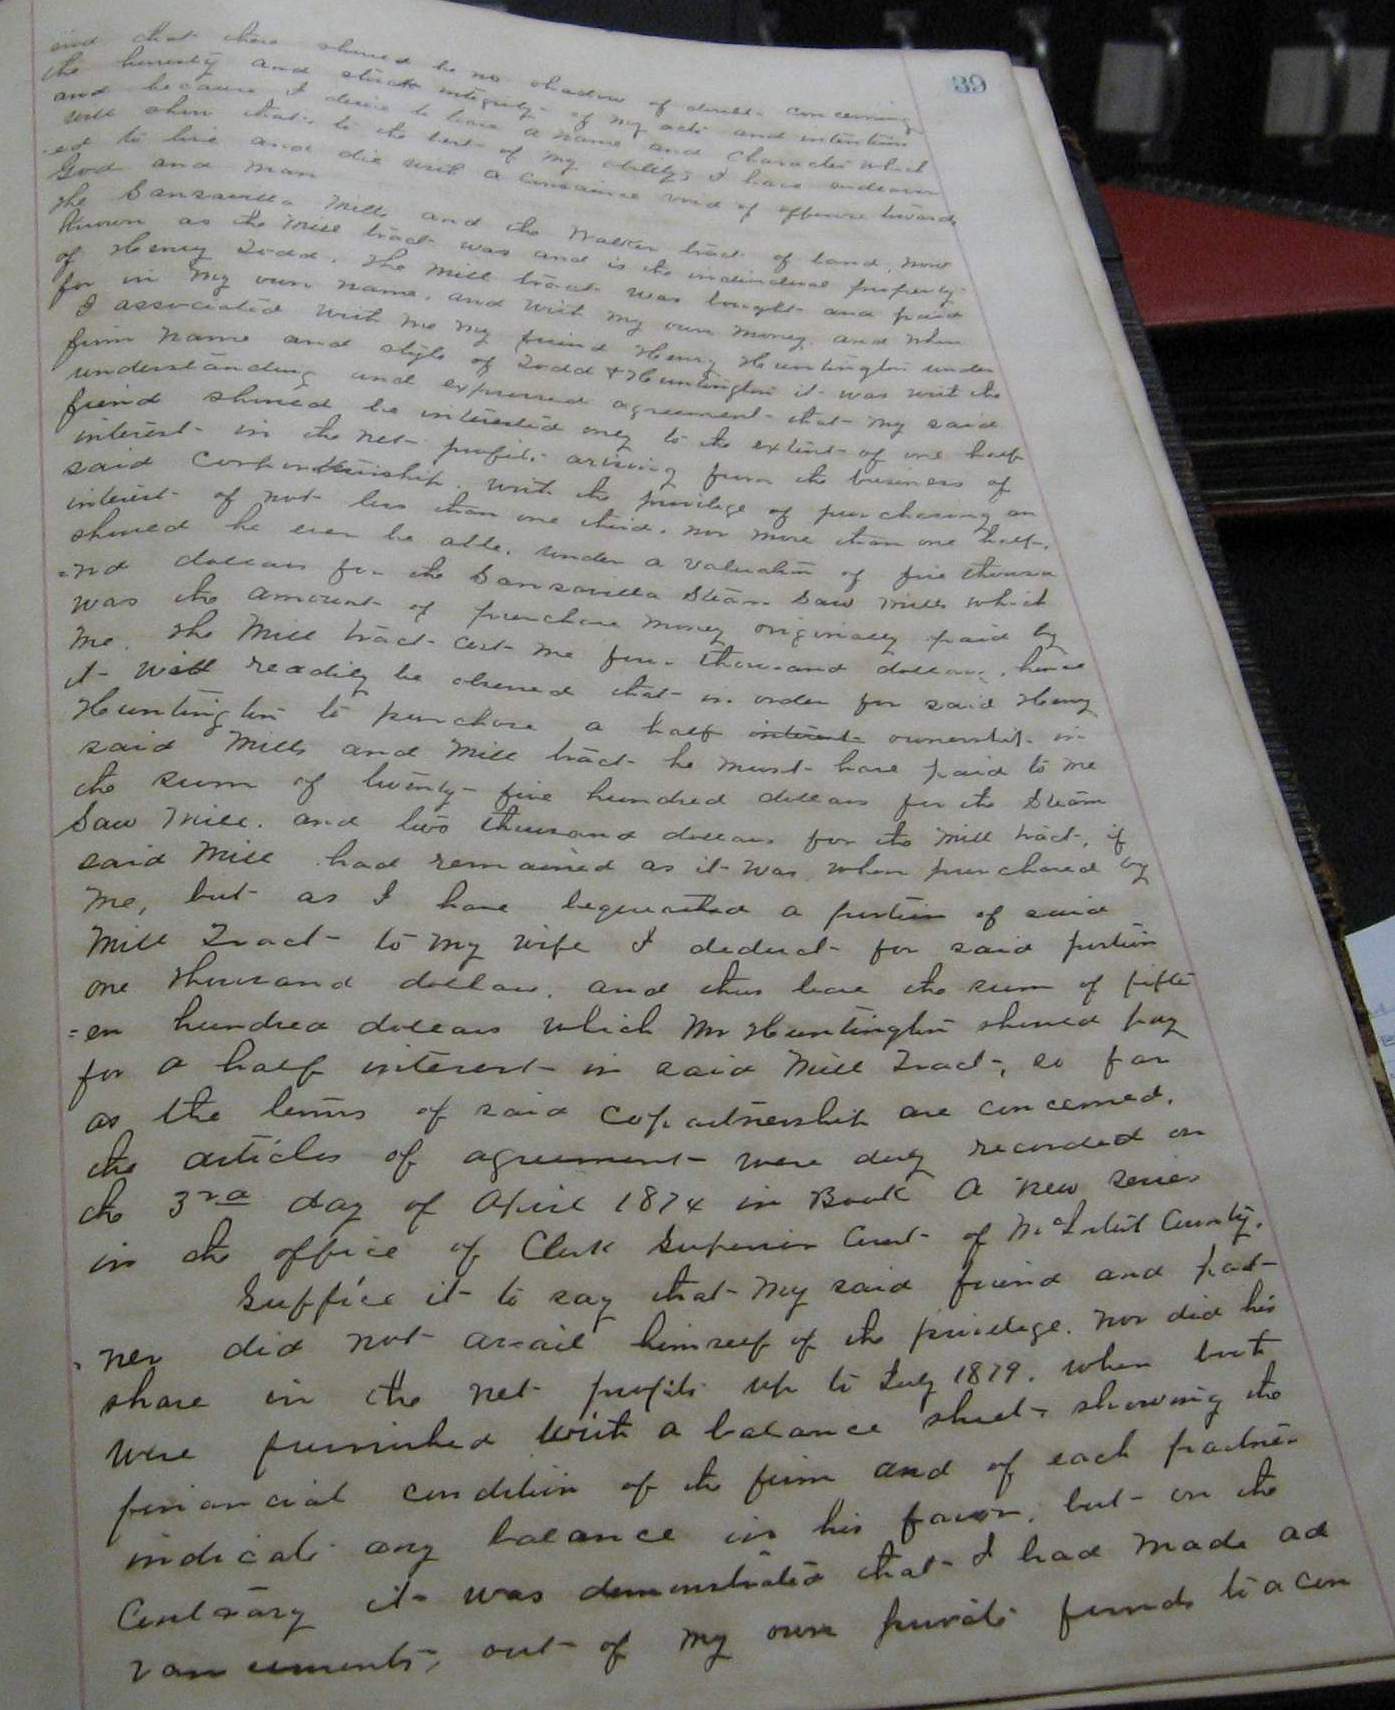 39
and that there should be no shadow of doubt concerning
the honesty and strict integrity of my acts and intentions
and because I desire to leave a name and character which
will show that to the best of my ability I have endeavor
-ed to live and die with a conscience void of offence towards
God and man
The Sansavilla Mills and the Walker tract of land, now
known as the Mill tract was and is the individual property
of Henry Todd. The Mill tract was bought and paid
for in my own name, and with my own money, and when
I associated with me my friend Henry Huntington under
firm name and style of Todd & Huntington it was with the
understanding and expressed agreement that my said
friend should be interested only to the extent of one half
interest in the net profits arising from the business of
said copartnership, with the privilege of purchasing an
interest of not less than one third, nor more than one half,
should he ever be able, under a valuation of five thousa
=nd dollars for the Sansavilla Steam Saw Mills which
was the amount of purchase money originally paid by
me. The Mill tract cost me four thousand dollars, hence
it will readily be observed that in order for said Henry
Huntington to purchase a half interest ownership in
said Mills and Mill tract he must have paid to me
the sum of twenty-five hundred dollars for the Steam
Saw Mill. and two thousand dollars for the Mill tract, if
said Mill had remained as it was when purchased by
me, but as I have bequeathed a portion of said
Mill Tract to my wife I deduct for said portion
one thousand dollars. and thus leave the sum of fifte
=en hundred dollars which Mr Huntington should pay
for a half interest in said Mill Tract, so far
as the terms of said copartnership are concerned.
the articles of agreement were duly recorded on
the 3rd day of April 1874 in Book A new series
in the office of Clerk Superior Court of McIntosh County.
Suffice it to say that my said friend and part-
-ner did not avail himself of the privilege. nor did his
share in the net profits up to July 1879. when both
were furnished with a balance sheet showing the
financial condition of the firm and of each partner
indicate any balance in his favor, but on the
Contrary it was demonstrated that I had made ad
vancements, out of my own private funds to a con